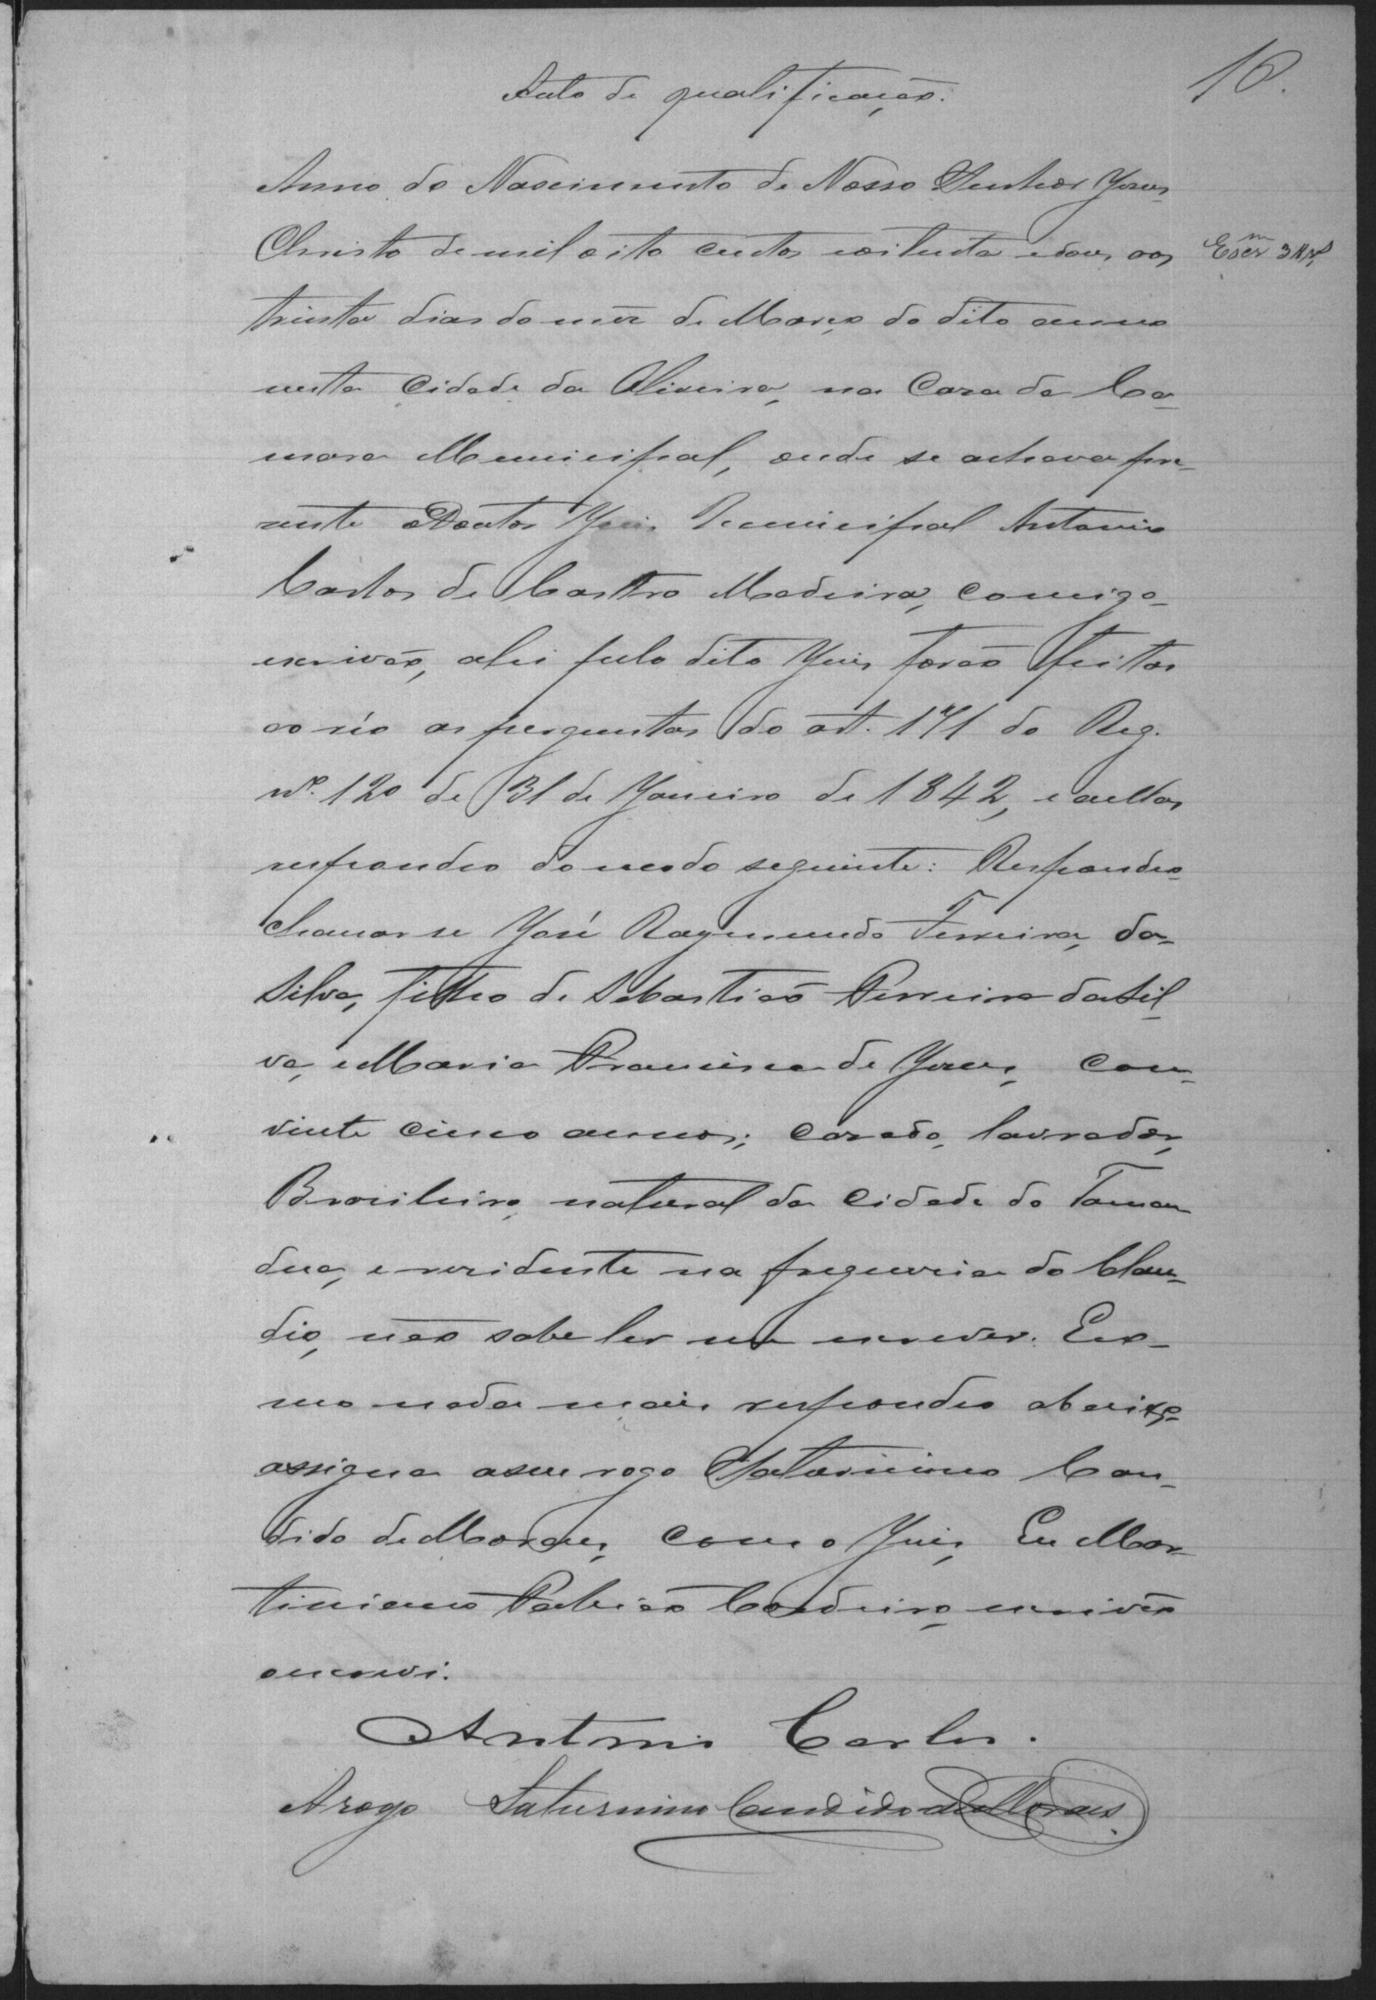 16.
Auto de qualificação.
Anno do Nascimento de Nosso Senhor Jesus
Christo de mil oito centos e oitenta e dous, aos
trinta dias do mez de Março do dito anno
nesta Cidade da Oliveira, na Caza da Ca-
mara Municipal, onde se achava pre-
zente o Doutor Juis Municipal Antonio
Carlos de Castro Madeira, comigo
escrivão, ahi pelo dito Juis forão feitas
ao réo as perguntas do art. 171 do Reg.
Nº. 120 de 31 de Janeiro de 1842, e a ellas
respondeo do modo seguinte: Respondeo
chamar se José Raymundo Ferreira, da
Silva, filho de Sebastião Ferreira da Sil-
va, e Maria Francisca de Jesus, com
vinte cinco annos; cazado, lavrador,
Brazileiro, natural da Cidade do Taman
dua, e rezidente na freguezia do Clau-
dio, não sabe ler nem escrever. E co-
mo nada mais respondeo abaixo
assigna a seu rogo Saturnino Can-
dido de Moraes, com o Juis, Eu Mar
tiniano Cordeiro, escrivão
o escrevi.
Antonio Carlos.
A rogo Saturnino Candido de Moraes.